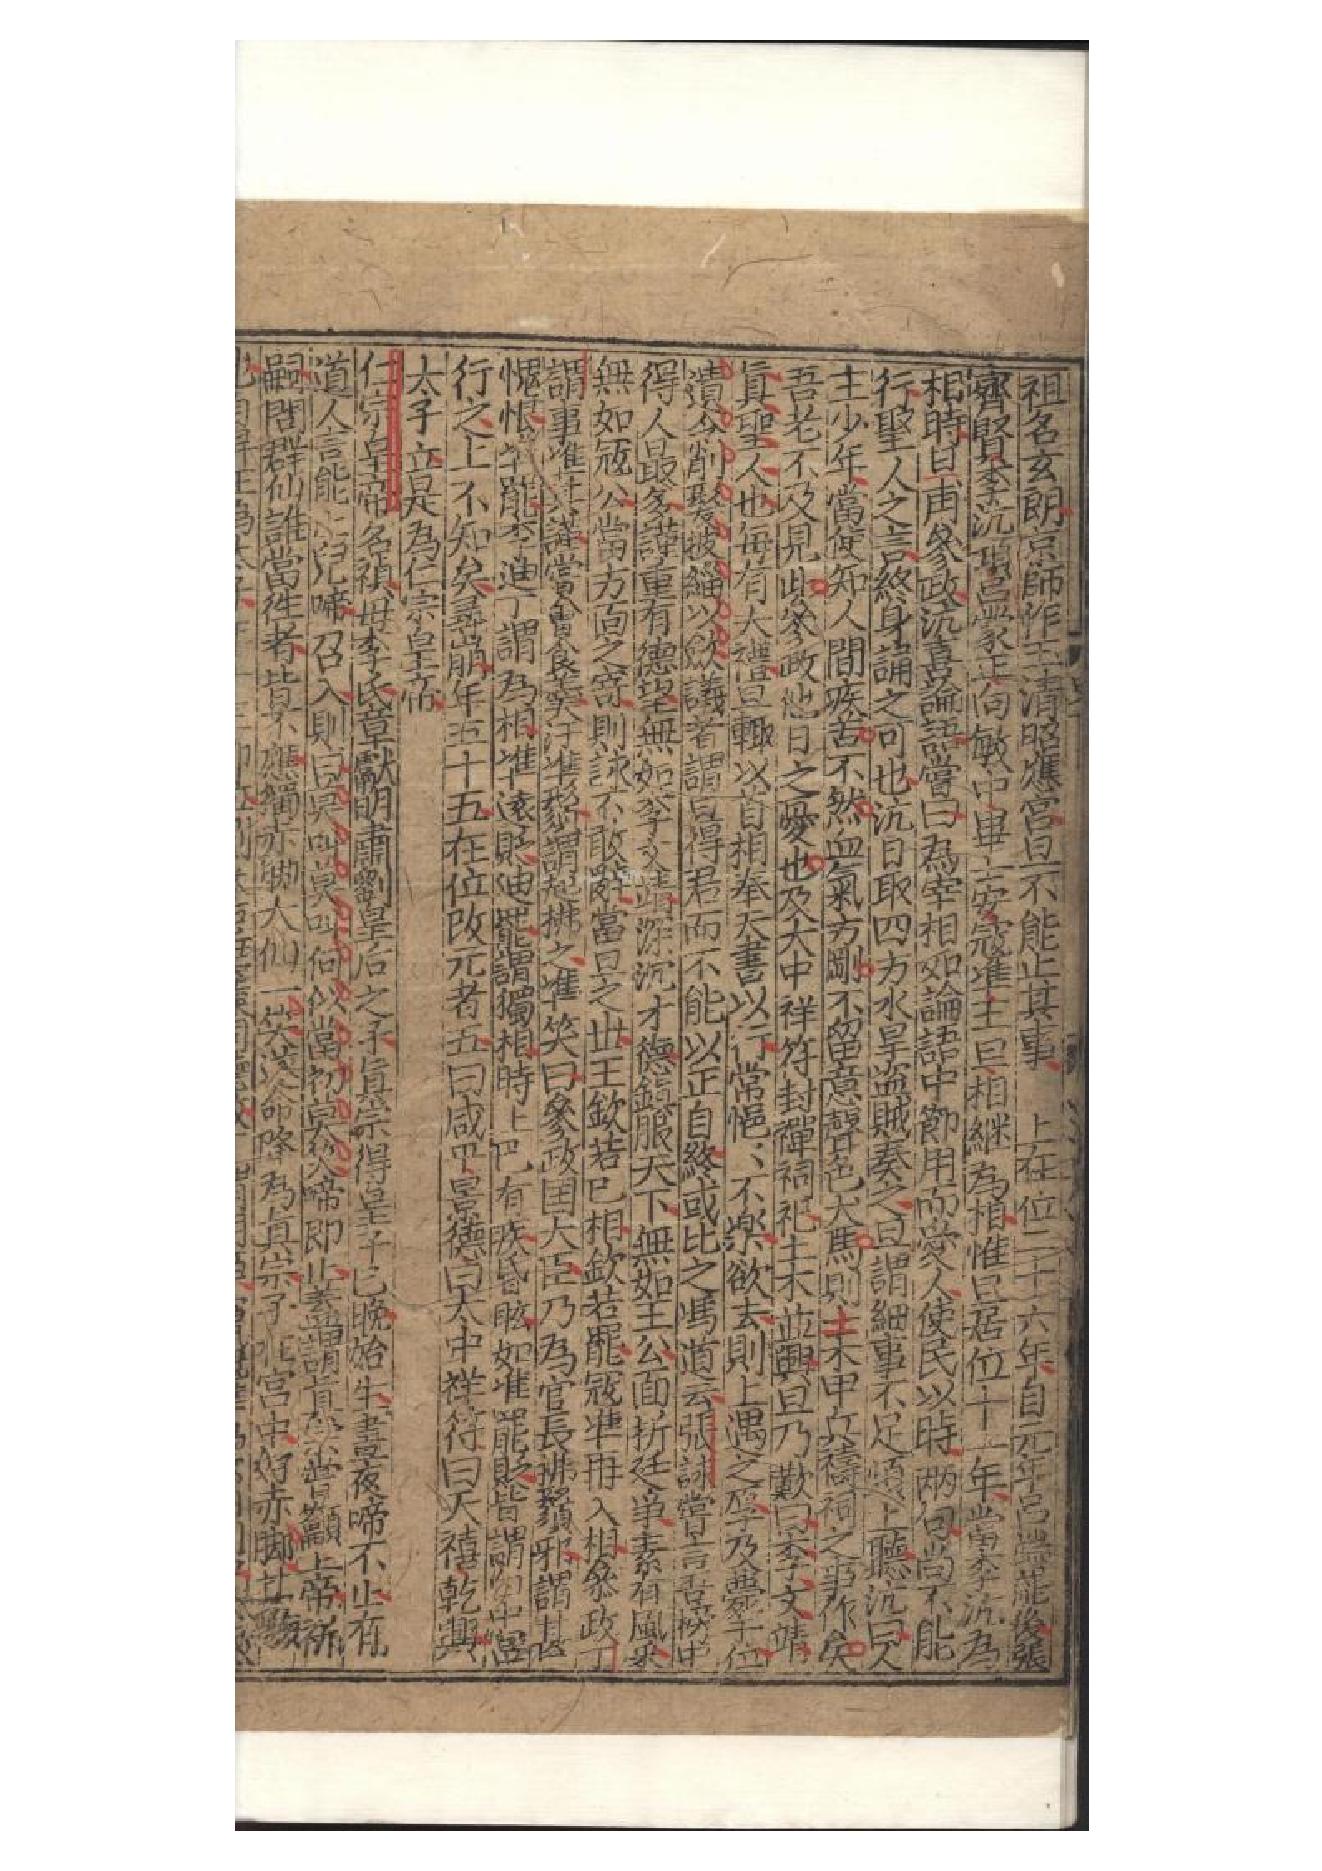 祖名玄朗京師作玉清昭應宮旦不能止其事上在位二十六年自元年呂端罷後張
齊賢李沆呂蒙正向敏中畢士安寇準王旦相継為相惟旦居位十一年當李沆為
相時旦甫參政沆喜論語嘗曰為宰相如論語中節用而愛人使民以時兩句尚不能
行聖人之言終身誦之可也沆日取四方水旱盗賊奏之旦謂細事不足煩上聽沆曰人
主少年當使知人間疾苦不然血氣方剛不留意聲色犬馬則土木甲兵禱祠之事作矣
吾老不及見此參政他日之憂也及大中祥符封禪祠祀土木並興旦乃歎曰李文靖
眞聖人也每有大禮旦輙以首相奉天書以行常悒〻不樂欲去則上遇之厚乃薨于位
遺令削髮披緇以歛議者謂旦得君而不能以正自終或比之馮道云張詠嘗言吾榜中
得人最多謹重有德望無如李文靖深沉才德鎮服天下無如王公面折廷争素有風采
無如寇公當方面之寄則詠不敢辭當旦之世王欽若已相欽若罷寇準再入相參政丁
謂事準甚謹嘗會食羹汙準鬚謂起拂之準笑曰參政國大臣乃為官長拂鬚邪謂甚
愧恨準罷李迪丁謂為相準遠貶迪罷謂獨相時上已有疾昏眩如準罷貶皆謂白中宮
行之上不知矣尋崩年五十五在位改元者五曰咸平景德曰大中祥符曰天禧乾興
太子立是為仁宗皇帝
仁宗皇帝名禎母李氏章獻明肅劉皇后之子真宗得皇子已晚始生晝夜啼不止有
道人言能止兒啼召入則曰莫叫莫叫何似當初莫笑啼即止盖謂真宗嘗籲上帝祈
嗣問群仙誰當徃者皆不應獨赤脚大仙一笑遂命降為真宗子在宮中好赤脚其驗